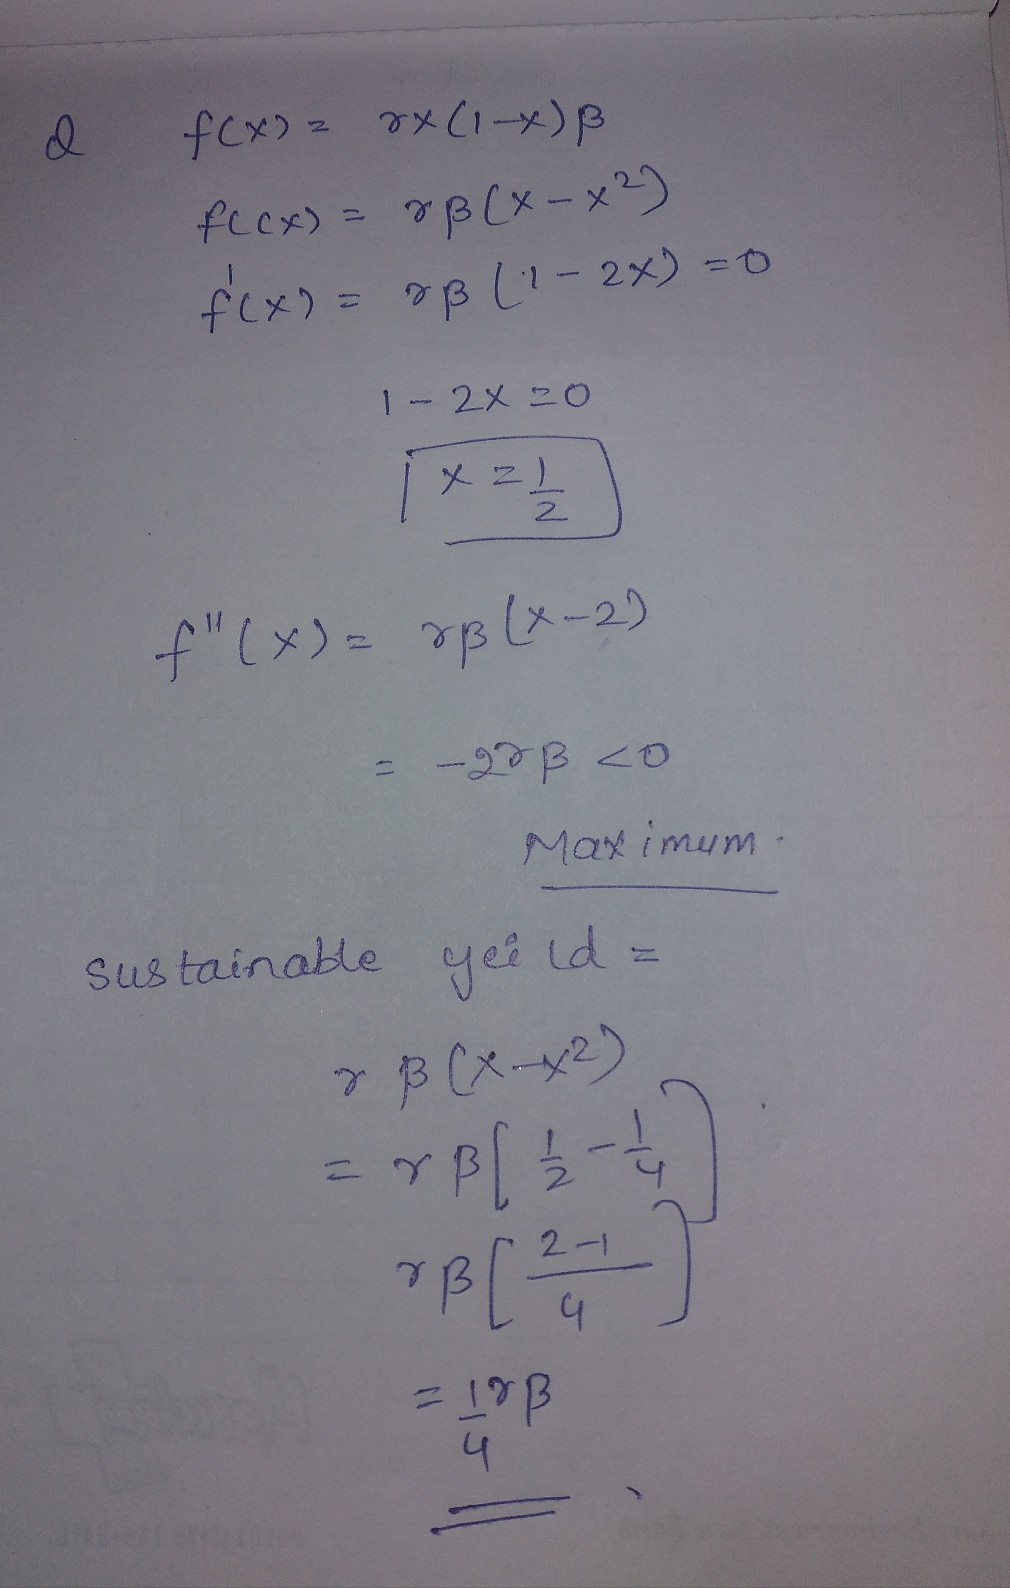 Q f(x) = rx(1-x)β
f((x) = rβ(x-x²)
f'(x) = rβ(1-2x) = 0
1-2x=0
x = 1/2
f"(x) = rβ(x-2)
= -2rβ <0
Maximum.
sustainable yeild =
rβ(x-x²)
= rβ[1/2 - 1/4]
rβ[2-1/4]
= 1/4 rβ